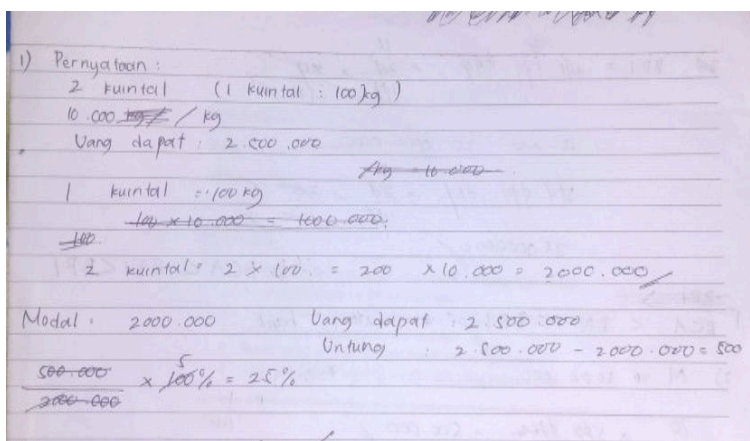 1) Pernyataan :
2 kuintal (1 kuintal : 100 kg)
10.000 / kg
Uang dapat : 2.500.000
/kg = 10.000
1 kuintal = 100 kg
100 × 10.000 = 1000.000
100
2 kuintal = 2 × 100 = 200 × 10.000 = 2000.000
Modal : 2000.000 Uang dapat : 2.500.000
Untung : 2.500.000 - 2000.000 = 500
500.000 5
× 100% = 25%
2000.000